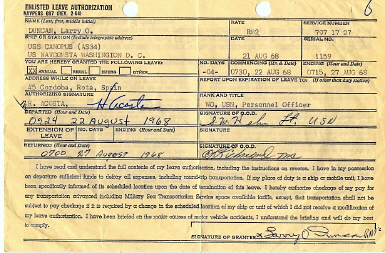 ENLISTED LEAVE AUTHORIZATION
6
NAME (Last, first, middle initial) RATE SERVICE NUMBER
DUNCAN, Larry G. 707 17 27
SHIP OR STATION (Include homeport address) DATE SERIAL NO.
USS CANOPUS (AS34) 21 AUG 68 1159
YOU ARE HEREBY GRANTED THE FOLLOWING LEAVE: NO. DAYS COMMENCING (Hour and Date) ENDING (Hour and Date)
ANNUAL -04- 0730, 22 AUG 68 0715, 27 AUG 68
ADDRESS WHILE ON LEAVE
45 Cordoba, Rota, Spain
AUTHORIZING SIGNATURE RANK AND TITLE
R. ACOSTA, WO, USN, Personnel Officer
DEPARTED (Hour and Date) SIGNATURE OF O.O.D.
0924 22 August 1968 USN
EXTENSION OF LEAVE NO. DAYS ENDING (Hour and Date) SIGNATURE
RETURNED (Hour and Date) SIGNATURE OF O.O.D.
0700 27 August 1968
I have read and understand the full contents of my leave authorization, including the instructions on reverse. I have in my possession
on departure sufficient funds to defray all expenses, including round-trip transportation. If my place of duty is a ship or mobile unit, I have
been specifically informed of its scheduled location upon the date of termination of this leave. I hereby authorize checkage of my pay for
any transportation advanced including Military Fee Transportation Service space available traffic, except, that transportation shall not be
subject to pay checkage if it is required by a change in the scheduled location of my ship or unit of which I did not receive a modification of
my leave authorization. I have been briefed on the major causes of motor vehicle accidents, I understand the briefing and will do my best
to comply.
SIGNATURE OF GRANTEE